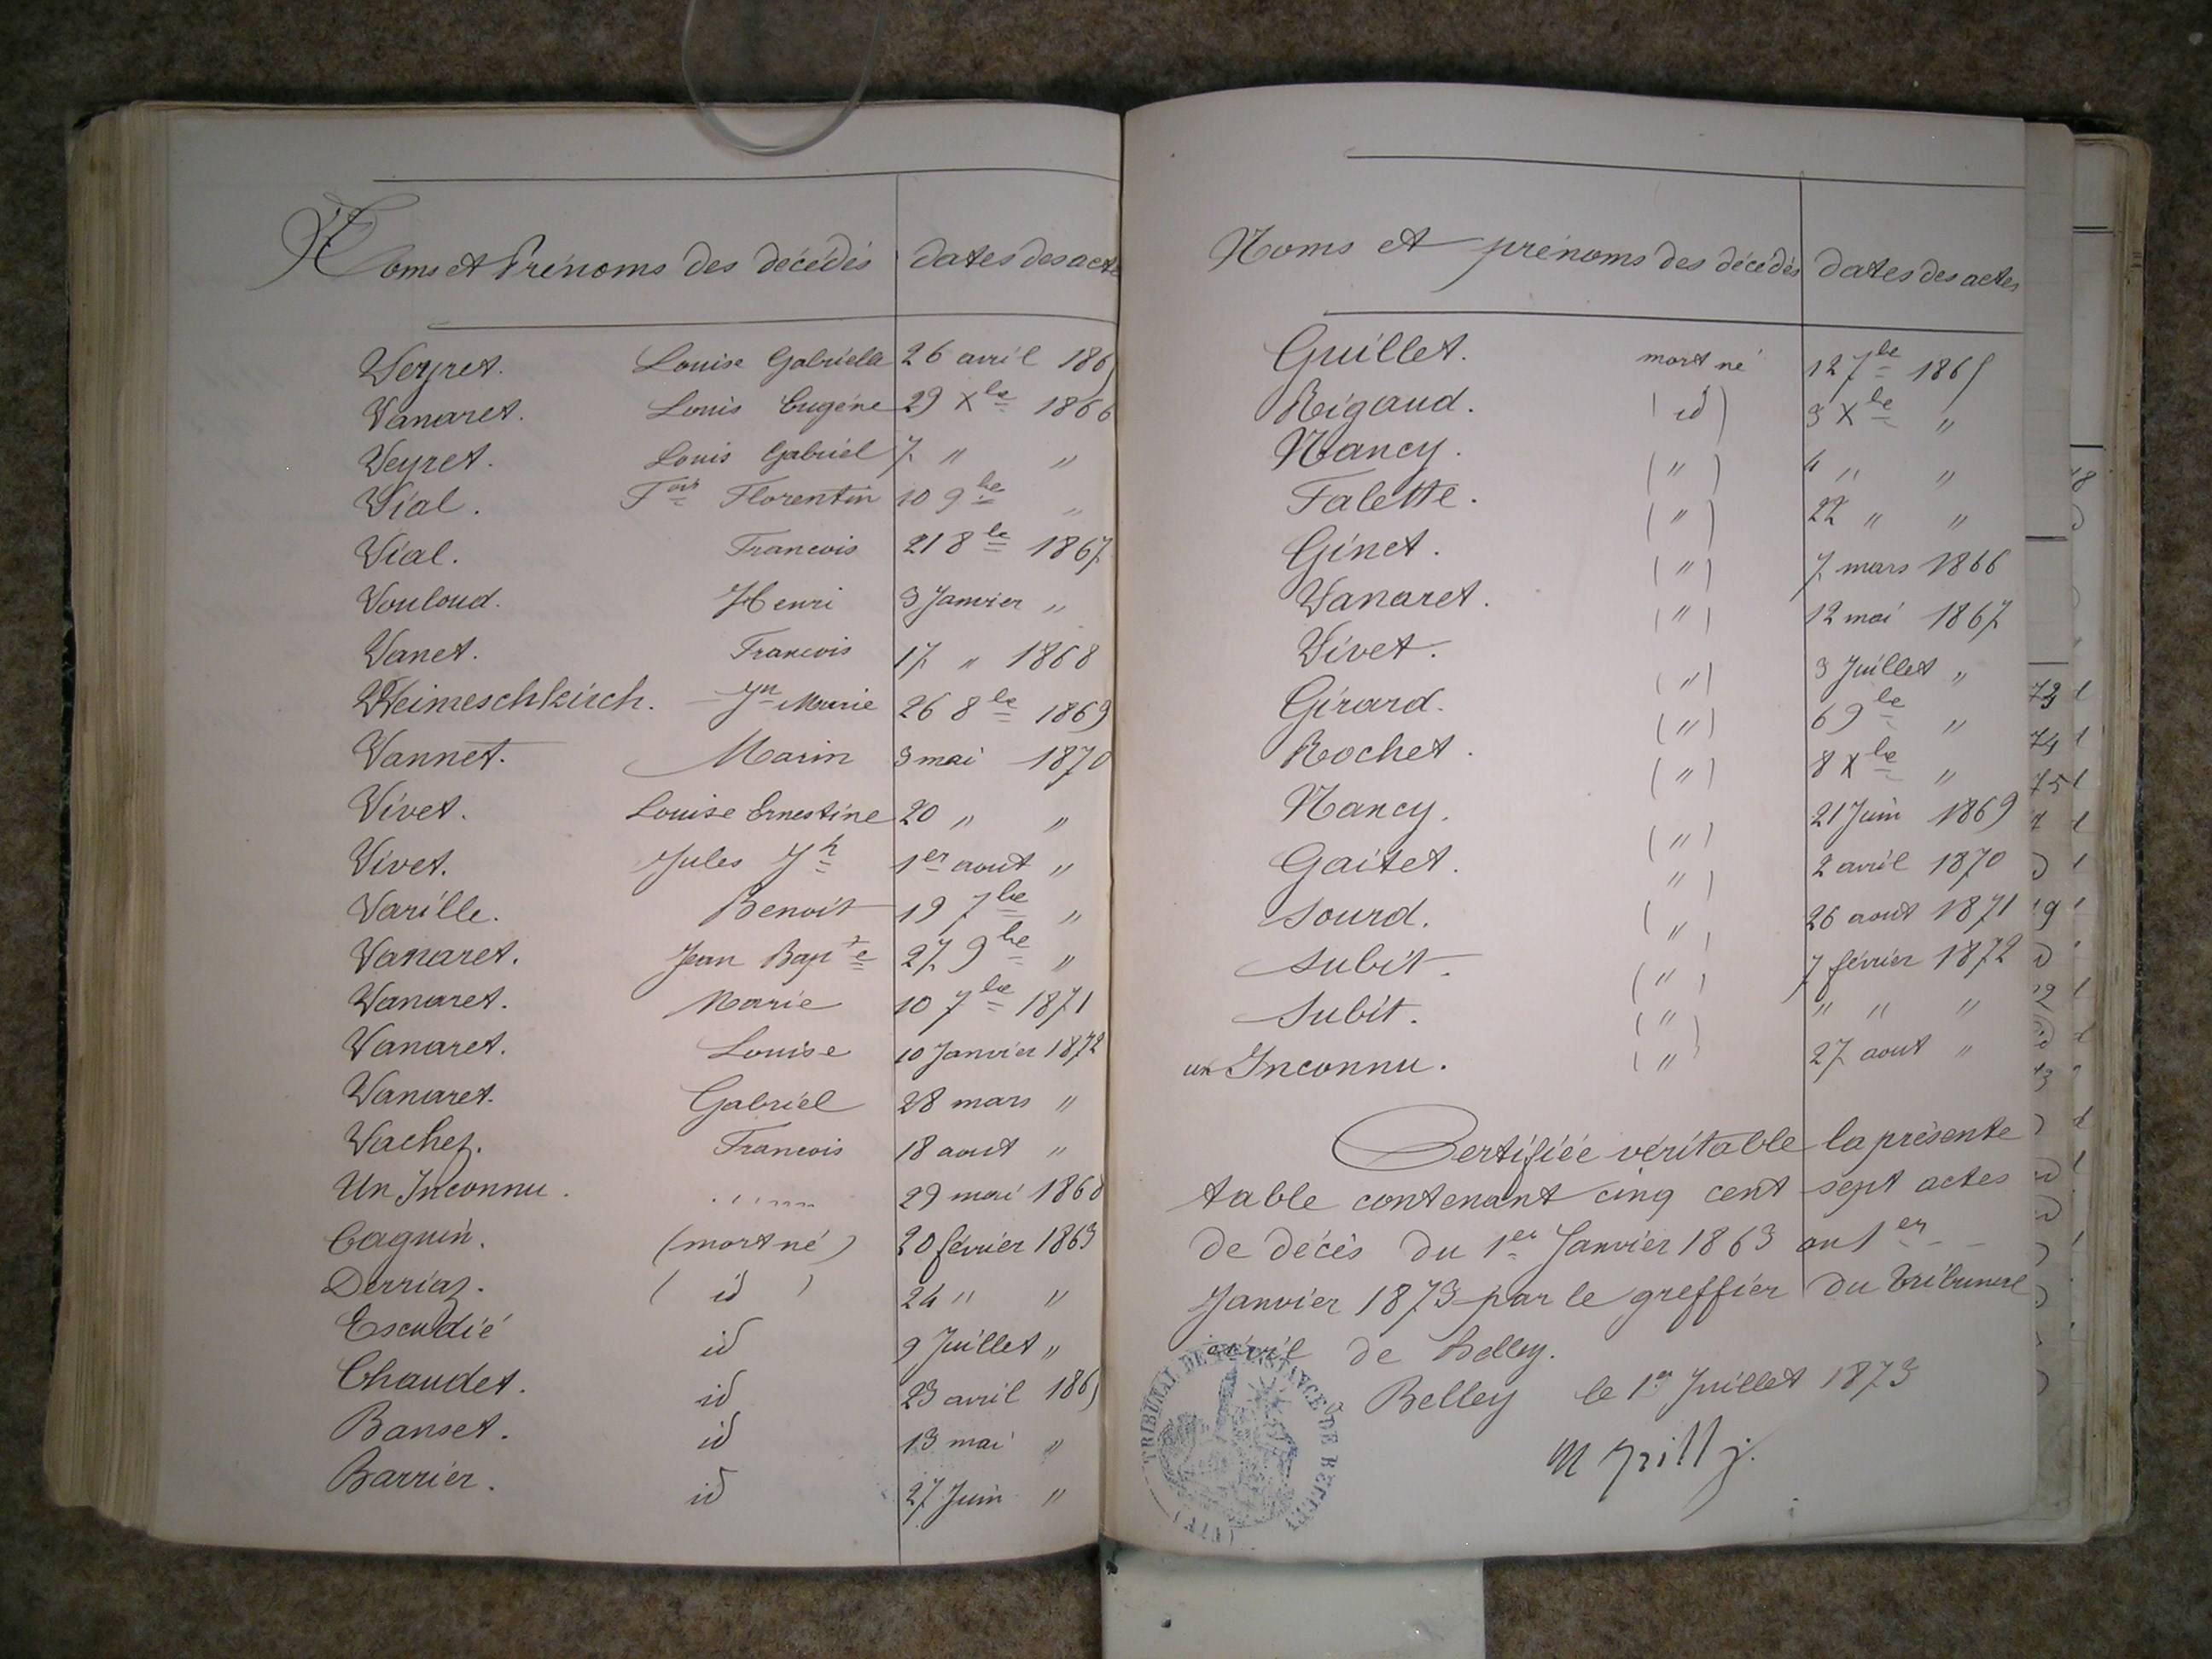 Noms et Prénoms des décédés dates des actes
Veyret. Louise Gabrielle 26 avril 1865
Vanaret. Louis Eugène 29 Xbre 1866
Veyret. Louis Gabriel 7 " "
Vial. Fois Florentin 10 9bre "
Vial. Francois 21 8bre 1867
Vouloud. Henri 3 Janvier "
Vanet. Francois 17 " 1868
Weimeschkirch. Jn Marie 26 8bre 1869
Vannet. Marin 3 mai 1870
Vivet. Louise Ernestine 20 " "
Vivet. Jules Jh 1er aout "
Varille. Benoit 19 7bre "
Vanaret. Jean Bapte 27 9bre "
Vanaret. Marie 10 7bre 1871
Vanaret. Louise 10 Janvier 1872
Vanaret. Gabriel 28 mars "
Vachez. Francois 18 aout "
Un Inconnu. 29 mai 1868
Caguin. (mort né) 20 février 1863
Derriaz. ( id ) 24 " "
Escudié id 9 Juillet "
Chaudet. id 23 avril 1865
Banset. id 13 mai "
Barrier. id 27 Juin "
Noms et prénoms des décédés dates des actes
Guillet. mort né 12 7bre 1865
Rigaud. (id) 3 Xbre "
Nancy. (") 4 " "
Falette. (") 22 " "
Ginet. (") 7 mars 1866
Vanaret. (") 12 mai 1867
Vivet. (") 3 Juillet "
Girard. (") 6 9bre "
Rochet. (") 8 Xbre "
Nancy. (") 21 Juin 1869
Gaitet. ") 2 avril 1870
Sourd. (") 26 aout 1871
Subit. (") 7 février 1872
Subit. (") " " "
un Inconnu. (") 27 aout "
Certifiée véritable la présente
table contenant cinq cent sept actes
de décès du 1er Janvier 1863 au 1er
Janvier 1873 par le greffier du tribunal
civil de Belley.
a Belley le 1er Juillet 1873
TRIBUNAL DE 1RE INSTANCE DE BELLEY